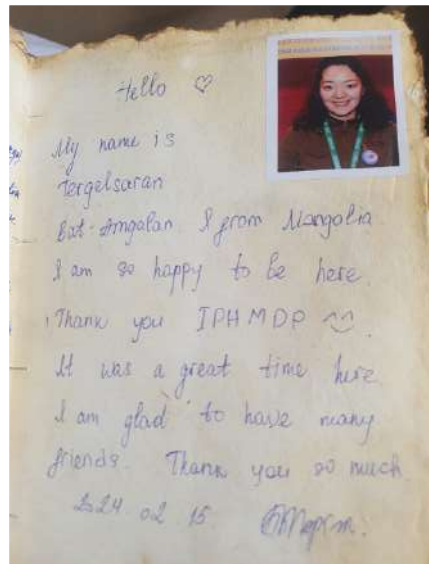 Hello ♡
My name is
Tergelsaran
Bat-Amgalan I from Mangolia
I am so happy to be here.
Thank you IPHMDP
It was a great time here
I am glad to have many
friends. Thank you so much
2024 02 15